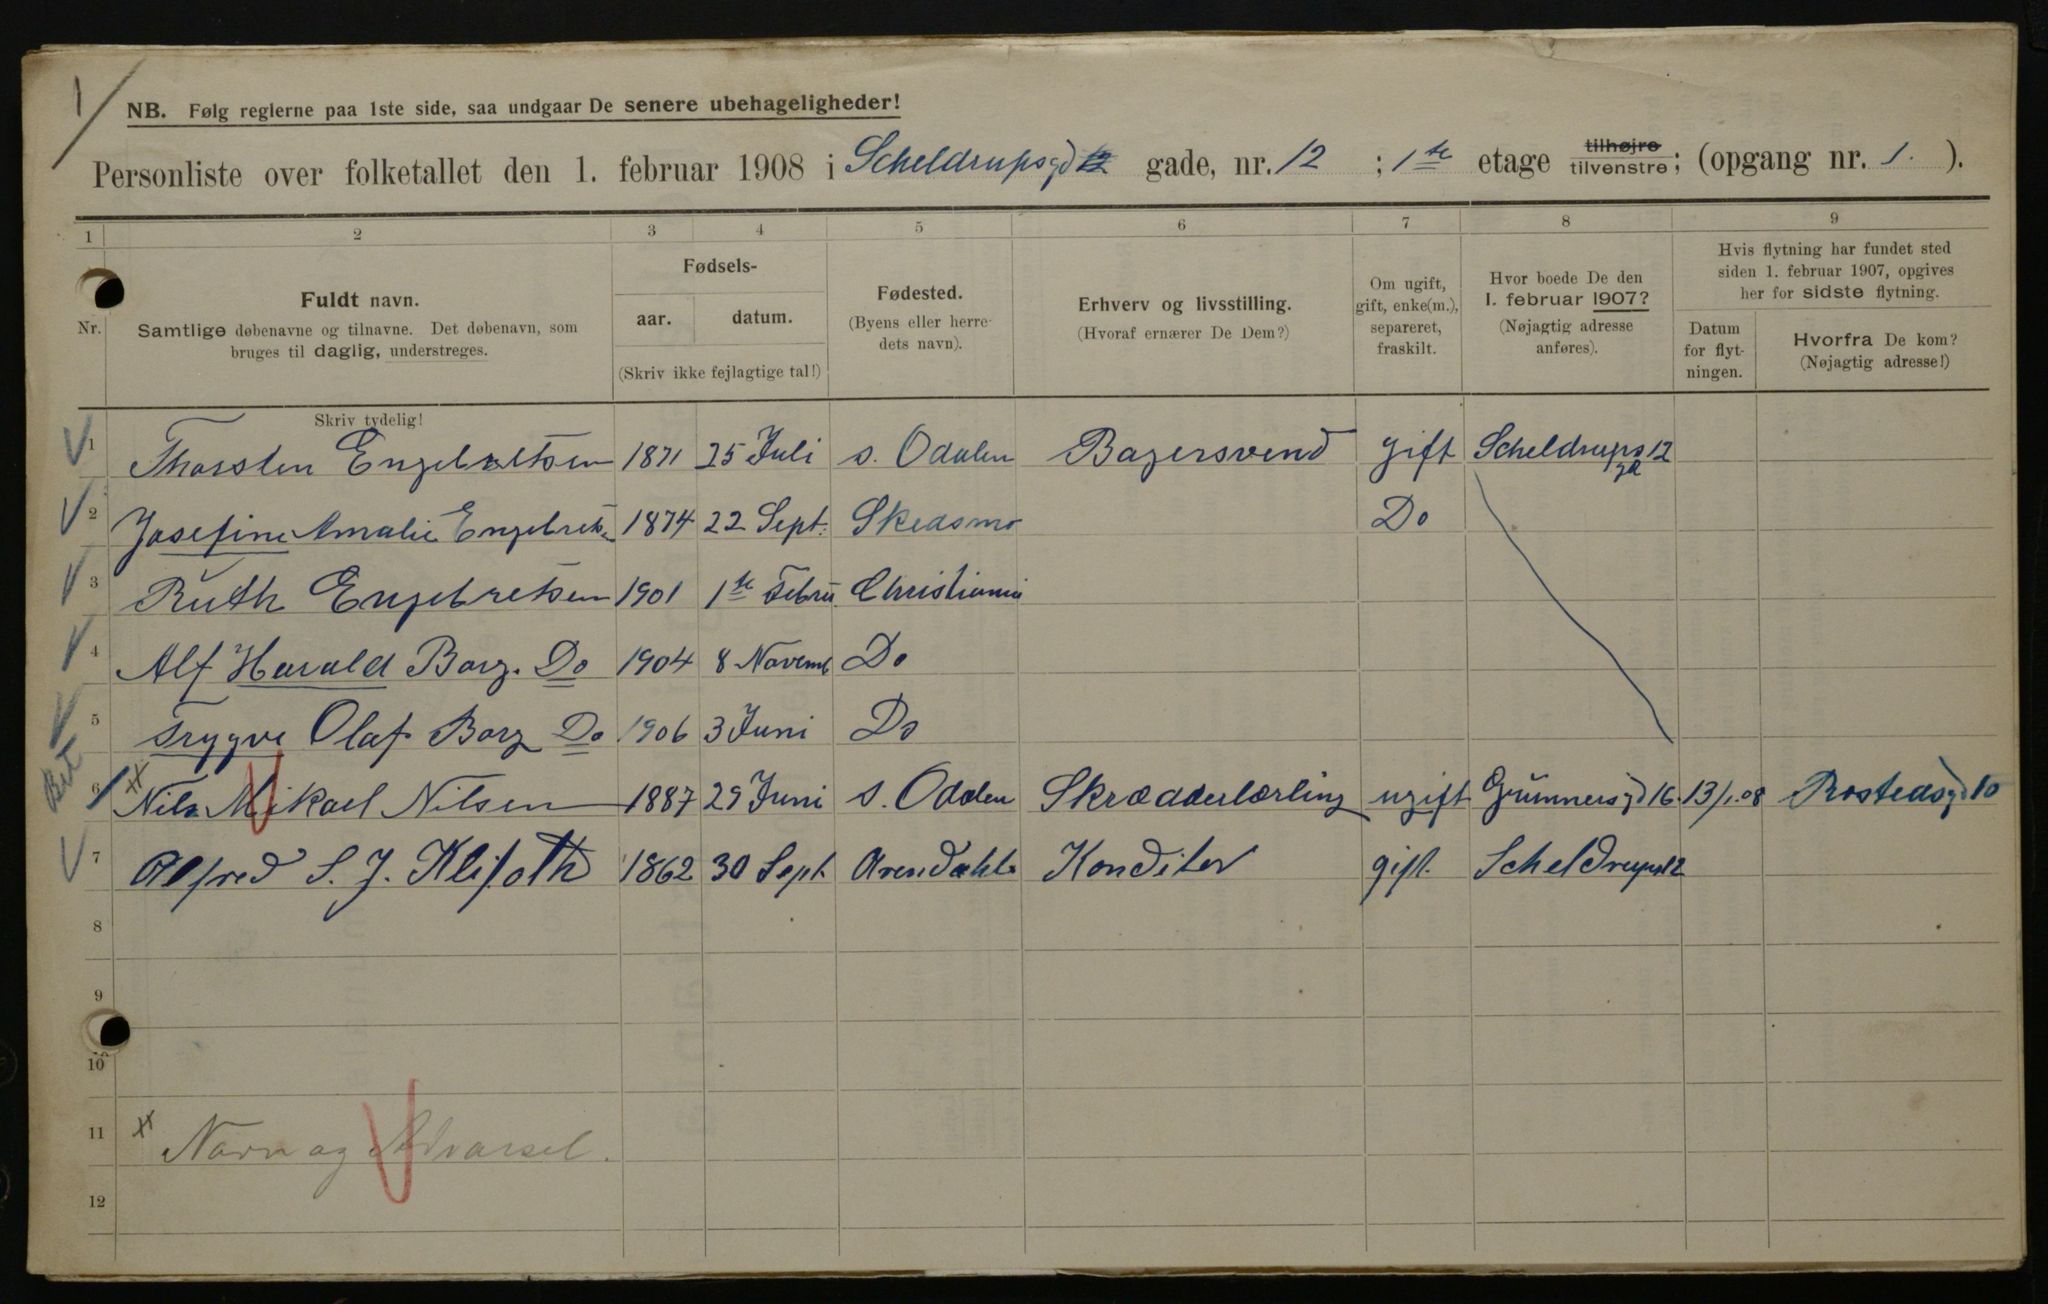 1
NB. Følg reglerne paa 1ste side, saa undgaar De senere ubehageligheder!
Personliste over folketallet den 1. februar 1908 i Scheldrupsgd 12 gade, nr. 12 ; 1ste etage tilhøjre tilvenstre ; (opgang nr. 1. ).
1 2 3 4 5 6 7 8 9
Nr.
Fuldt navn.
Samtlige døbenavne og tilnavne. Det døbenavn, som
bruges til daglig, understreges.
Fødsels-
aar. datum.
(Skriv ikke fejlagtige tal!)
Fødested.
(Byens eller herre-
dets navn).
Erhverv og livsstilling.
(Hvoraf ernærer De Dem?)
Om ugift,
gift, enke(m.),
separeret,
fraskilt.
Hvor boede De den
1. februar 1907?
(Nøjagtig adresse
anføres).
Hvis flytning har fundet sted
siden 1. februar 1907, opgives
her for sidste flytning.
Datum
for flyt-
ningen.
Hvorfra De kom?
(Nøjagtig adresse!)
Skriv tydelig!
1 Thorsten Engebretsen 1871 25 Juli s. Odalen Bagersvend gift Scheldrups 12
gd
2 Josefine Amalie Engebrets 1874 22 Sept. Skedsmo Do
3 Ruth Engebretsen 1901 1ste Febru Christiania
4 Alf Harald Borg. Do 1904 8 Novemb Do
5 Trygve Olaf Borg Do 1906 3 Juni Do
6 x Nils Mikael Nilsen 1887 29 Juni s. Odalen Skrædderlærling ugift Grünnersgd 16. 13/1.08 Rostedsgd 10
7 Alfred S. J. Klifoth 1862 30 Sept Arendahl Konditor gift. Scheldrups 12
8
9
10
11 x Navn og Advarsel.
12